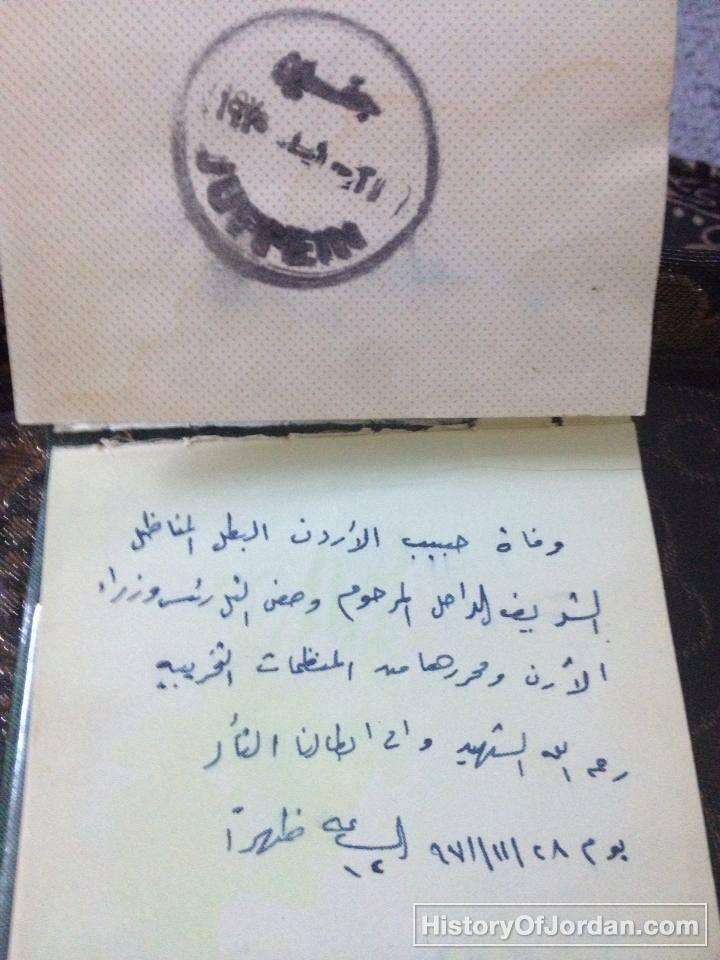 جفين
JUFFEIN
وفاة حبيب الأردن البطل المناظل
الشريف الراحل المرحوم وصفي التل رئيس وزراء
الأردن ومحررها من المنظمات التخريبيه
رحم الله الشهيد والى ابطالنا الثأر
يوم ٢٨/١١/٩٧١ الساعه ١٢ ظهرةً
HistoryOfJordan.com